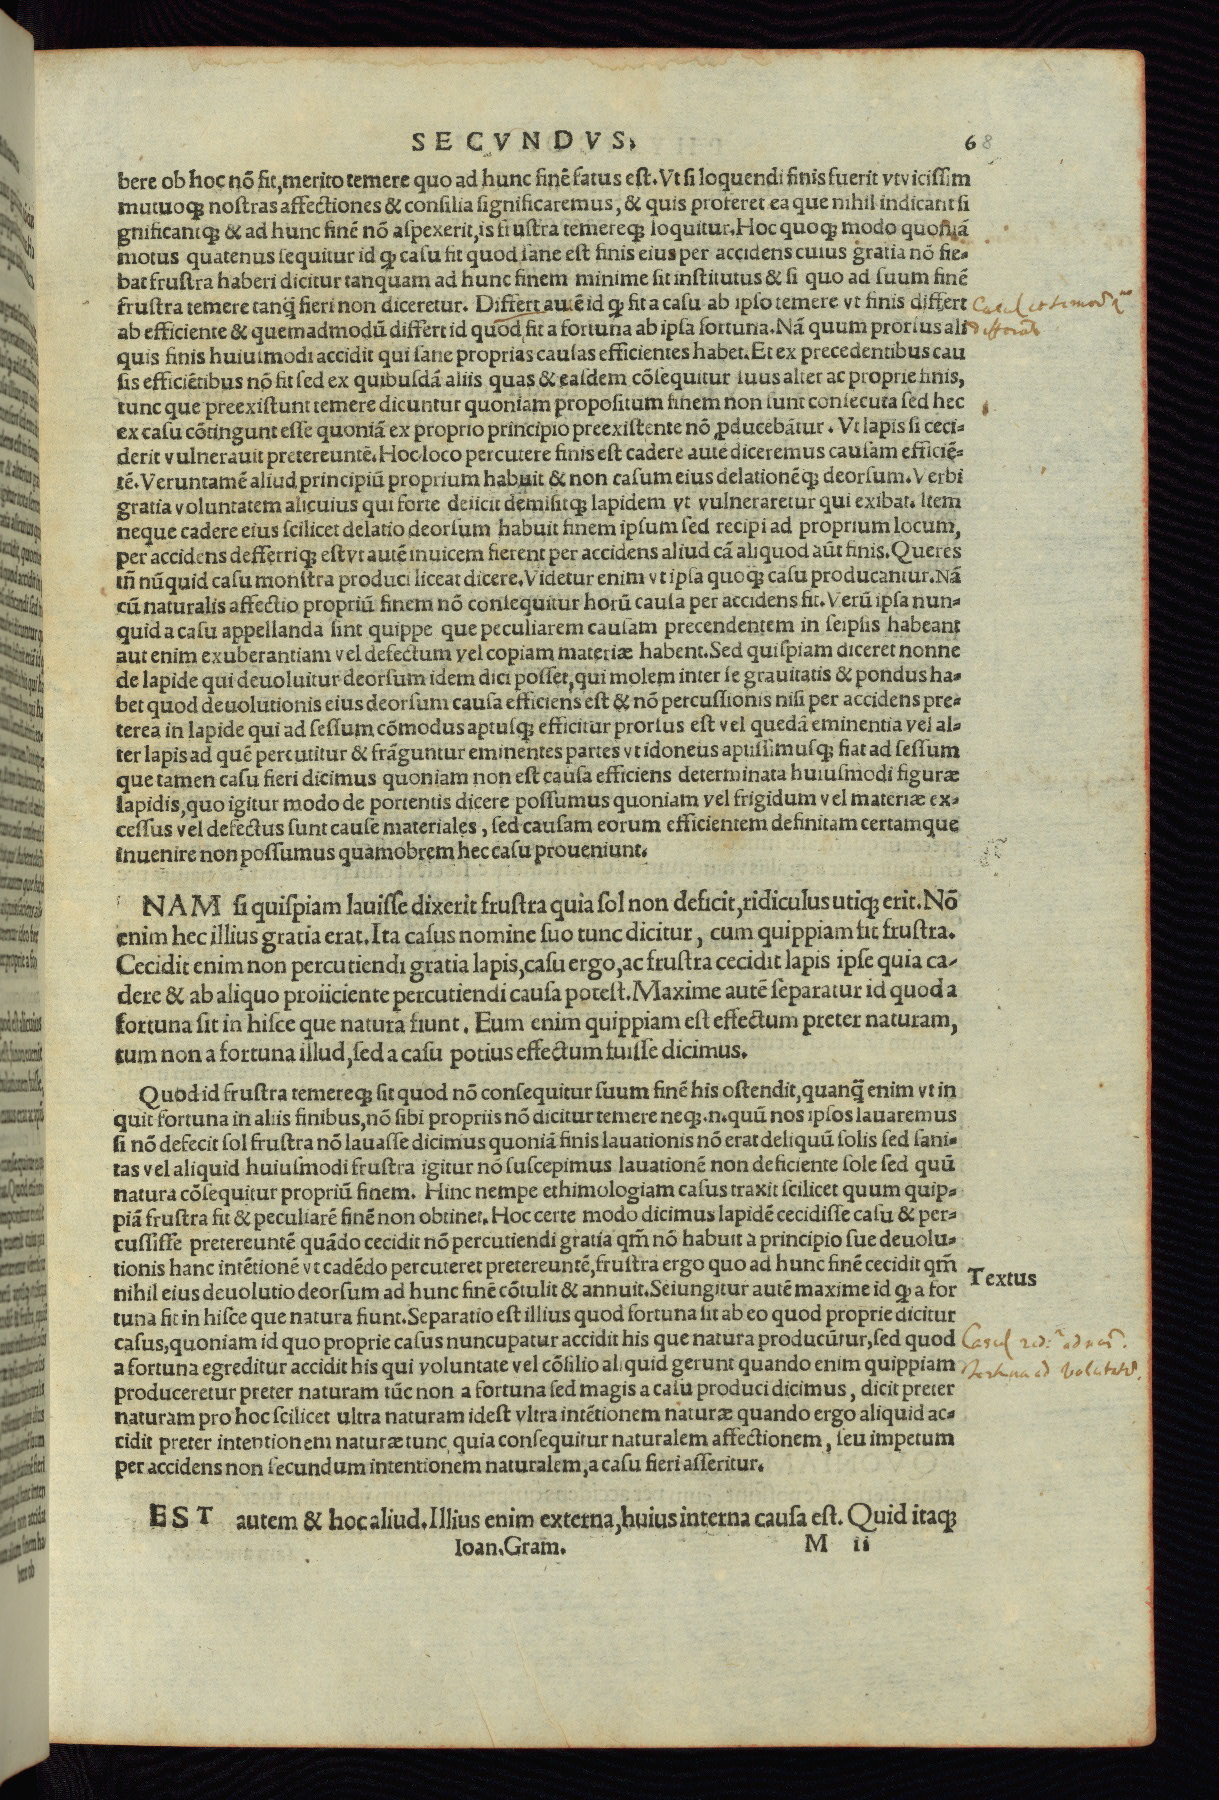 SECVNDVS.
68
bere ob hoc nõ fit, merito temere quo ad hunc finẽ fatus est. Vt si loquendi finis fuerit vt vicissim
mutuoq; nostras affectiones & consilia significaremus, & quis proferet ea que nihil indicant si
gnificantq; & ad hunc finẽ nõ aspexerit, is frustra temereq; loquitur. Hoc quoq; modo quoniã
motus quatenus sequitur id qđ casu fit quod sane est finis eius per accidens cuius gratia nõ fie-
bat frustra haberi dicitur tanquam ad hunc finem minime sit institutus & si quo ad suum finẽ
frustra temere tanq̃ fieri non diceretur. Differt autẽ id qđ fit a casu ab ipso temere vt finis differt
ab efficiente & quemadmodũ differt id quod fit a fortuna ab ipsa fortuna. Nã quum prorsus ali
quis finis huiusmodi accidit qui sane proprias causas efficientes habet. Et ex precedentibus cau
sis efficiẽtibus nõ fit sed ex quibusdã aliis quas & easdem cõsequitur suus alter ac proprie finis,
tunc que preexistunt temere dicuntur quoniam propositum finem non sunt consecuta sed hec
ex casu cõtingunt esse quoniã ex proprio principio preexistente nõ ꝓducebãtur. Vt lapis si ceci-
derit vulnerauit pretereuntẽ. Hoc loco percutere finis est cadere autẽ diceremus causam efficiẽ-
tẽ. Veruntamẽ aliud principiũ proprium habuit & non casum eius delationẽq; deorsum. Verbi
gratia voluntatem alicuius qui forte deiicit demisitq; lapidem vt vulneraretur qui exibat. Item
neque cadere eius scilicet delatio deorsum habuit finem ipsum sed recipi ad proprium locum,
per accidens defferriq; est vt autẽ inuicem fierent per accidens aliud cã aliquod aũt finis. Queres
tñ nũquid casu monstra produci liceat dicere. Videtur enim vt ipsa quoq; casu producantur. Nã
cũ naturalis affectio propriũ finem nõ consequitur horũ causa per accidens fit. Verũ ipsa nun-
quid a casu appellanda sint quippe que peculiarem causam precendentem in seipsis habeant
aut enim exuberantiam vel defectum vel copiam materiæ habent. Sed quispiam diceret nonne
de lapide qui deuoluitur deorsum idem dici posset, qui molem inter se grauitatis & pondus ha-
bet quod deuolutionis eius deorsum causa efficiens est & nõ percussionis nisi per accidens pre-
terea in lapide qui ad sessum cõmodus aptusq; efficitur prorsus est vel quedã eminentia vel al-
ter lapis ad quẽ percutitur & frãguntur eminentes partes vt idoneus aptissimusq; fiat ad sessum
que tamen casu fieri dicimus quoniam non est causa efficiens determinata huiusmodi figuræ
lapidis, quo igitur modo de portentis dicere possumus quoniam vel frigidum vel materiæ ex-
cessus vel defectus sunt cause materiales, sed causam eorum efficientem definitam certamque
inuenire non possumus quamobrem hec casu proueniunt.
NAM si quispiam lauisse dixerit frustra quia sol non deficit, ridiculus utiq; erit. Nõ
enim hec illius gratia erat. Ita casus nomine suo tunc dicitur, cum quippiam fit frustra.
Cecidit enim non percutiendi gratia lapis, casu ergo, ac frustra cecidit lapis ipse quia ca-
dere & ab aliquo proiiciente percutiendi causa potest. Maxime autẽ separatur id quod a
fortuna sit in hisce que natura fiunt. Eum enim quippiam est effectum preter naturam,
tum non a fortuna illud, sed a casu potius effectum fuisse dicimus.
Quod id frustra temereq; sit quod nõ consequitur suum finẽ his ostendit, quanq̃ enim vt in
quit fortuna in aliis finibus, nõ sibi propriis nõ dicitur temere neq;.n.quũ nos ipsos lauaremus
si nõ defecit sol frustra nõ lauasse dicimus quoniã finis lauationis nõ erat deliquũ solis sed sani-
tas vel aliquid huiusmodi frustra igitur nõ suscepimus lauationẽ non deficiente sole sed quũ
natura cõsequitur propriũ finem. Hinc nempe ethimologiam casus traxit scilicet quum quip-
piã frustra fit & peculiarẽ finẽ non obtinet. Hoc certe modo dicimus lapidẽ cecidisse casu & per-
cussisse pretereuntẽ quãdo cecidit nõ percutiendi gratia qm̃ nõ habuit a principio sue deuolu-
tionis hanc intẽtionẽ vt cadẽdo percuteret pretereuntẽ, frustra ergo quo ad hunc finẽ cecidit qm̃
nihil eius deuolutio deorsum ad hunc finẽ cõtulit & annuit. Seiungitur autẽ maxime id qđ a for
tuna fit in hisce que natura fiunt. Separatio est illius quod fortuna sit ab eo quod proprie dicitur
casus, quoniam id quo proprie casus nuncupatur accidit his que natura producũtur, sed quod
a fortuna egreditur accidit his qui voluntate vel cõsilio aliquid gerunt quando enim quippiam
produceretur preter naturam tũc non a fortuna sed magis a casu produci dicimus, dicit preter
naturam pro hoc scilicet ultra naturam idest vltra intẽtionem naturæ quando ergo aliquid ac-
cidit preter intentionem naturæ tunc quia consequitur naturalem affectionem, seu impetum
per accidens non secundum intentionem naturalem, a casu fieri asseritur.
Textus
EST autem & hoc aliud. Illius enim externa, huius interna causa est. Quid itaq;
Ioan. Gram. M ii